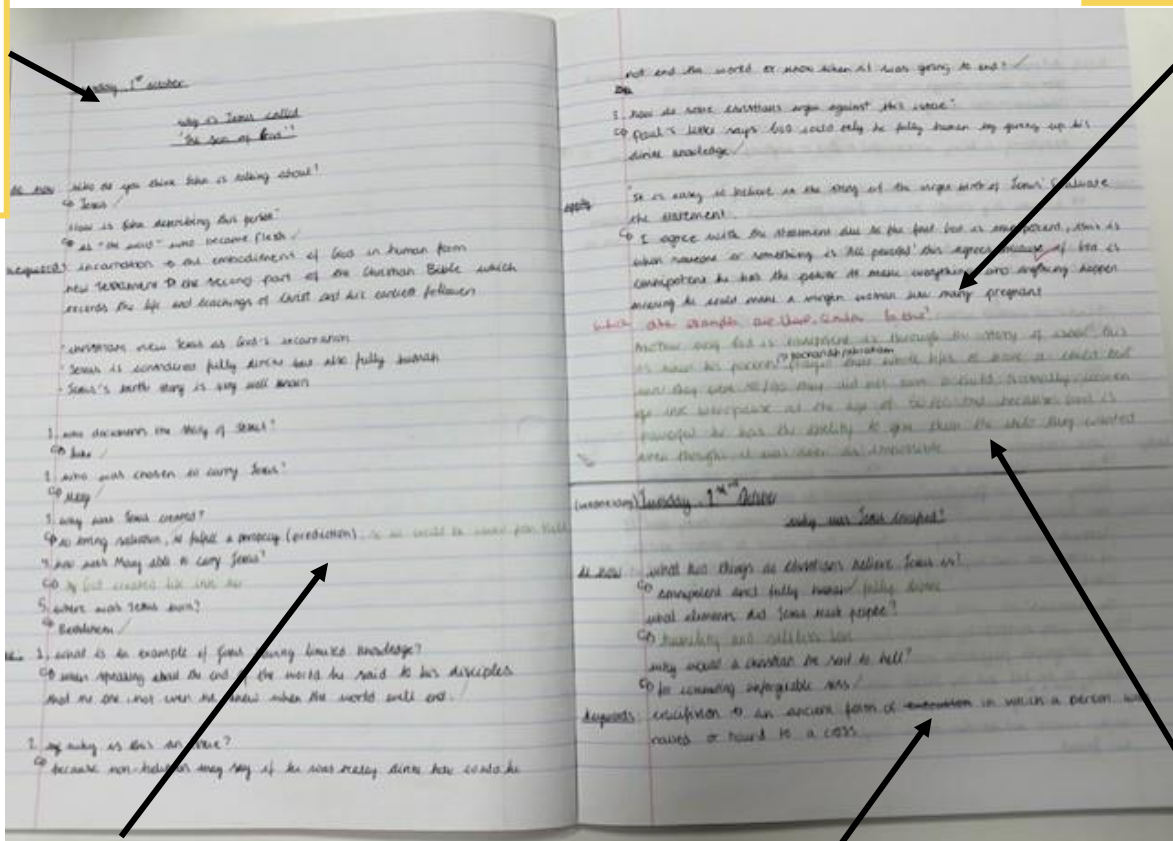 1st october
why is Jesus called
'the Son of God'?
do now who do you think John is talking about?
Jesus
How is John describing this person?
as "the word" who became flesh
keywords: incarnation the embodiment of God in human form
new testament the second part of the Christian Bible which
records the life and teachings of Christ and his earliest followers
Christians view Jesus as God's incarnation
Jesus is considered fully divine but also fully human
Jesus's birth story is very well known
1. who documents the story of Jesus?
Luke
2. who was chosen to carry Jesus?
Mary
3. why was Jesus created?
to bring salvation, to fulfill a prophecy (prediction).
4. how was Mary able to carry Jesus?
God created life
5. where was Jesus born?
Bethlehem
1. what is an example of Jesus having limited knowledge?
when speaking about the end of the world he said to his disciples
that no one, not even he knew when the world will end.
2. why is this an issue?
because non-believers may say if he was really divine how could he
not end the world or know when it was going to end?
3. how do some christians argue against this issue?
Paul's letter says God could only be fully human by giving up his
divine knowledge
apply 'It is easy to believe in the story of the virgin birth of Jesus' Evaluate
the statement.
I agree with the statement due to the fact God is omnipotent, this is
when someone or something is 'All powerful' this agrees because if God is
omnipotent he has the power to make everything and anything happen
meaning he could make a virgin woman like mary pregnant
which other examples are there, similar to this?
Another way God is omnipotent is through the story of
is when his parents prayed their whole lives to have a child but
when they were they did not have a child
at the age of because God is
powerful he has the ability to give them the child they wanted
even though it was seen as impossible.
(wednesday) Tuesday, 1st
why was Jesus crucified?
do now: what two things do christians believe Jesus is?
omnipotent and fully human fully divine
what elements did Jesus teach people?
humility and selfless love
why would a christian be sent to hell?
for committing unforgivable sins
keywords: crucifixion an ancient form of execution in which a person was
nailed or bound to a cross